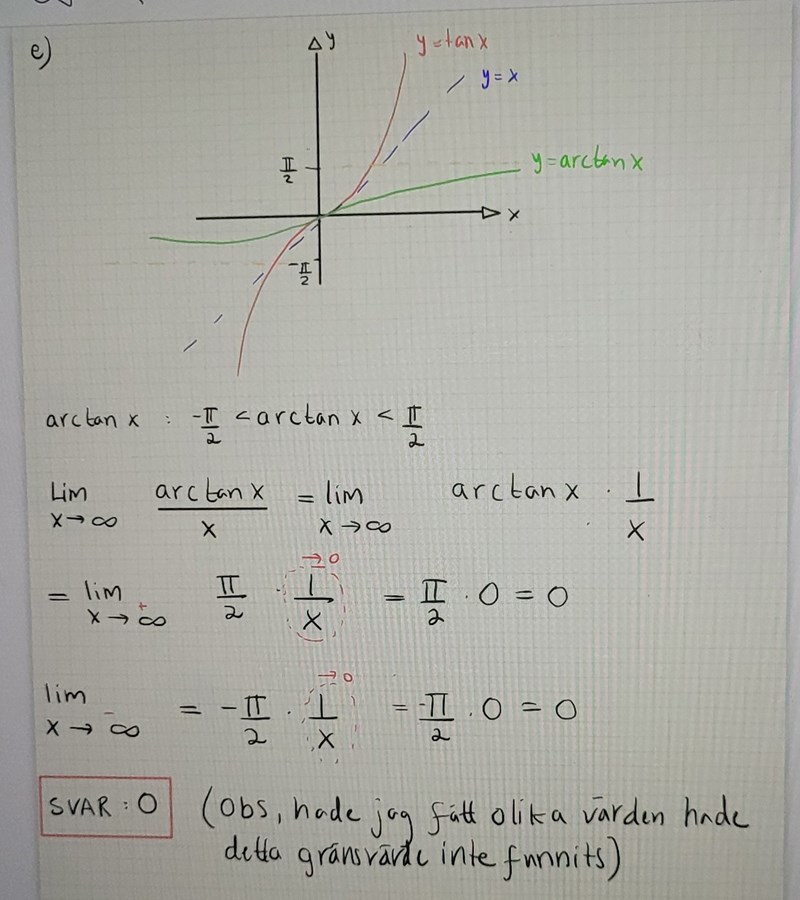 e)
y
y=tan x
y=x
π/2
y=arctan x
x
-π/2
arctan x : -π/2 < arctan x < π/2
Lim x→∞ arctan x / x = lim x→∞ arctan x · 1/x
→0
= lim x→+∞ π/2 · 1/x = π/2 · 0 = 0
→0
lim x→-∞ = -π/2 · 1/x = -π/2 · 0 = 0
SVAR : 0 (Obs, hade jag fått olika värden hade
detta gränsvärde inte funnits)